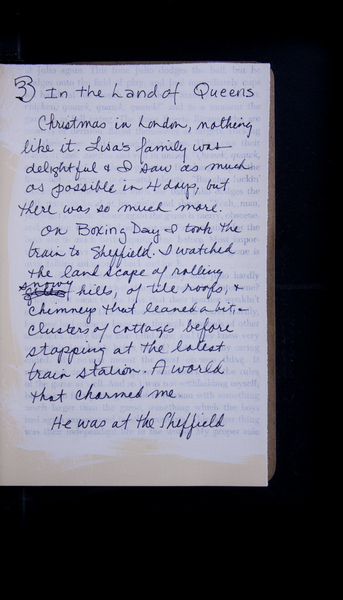 3) In the Land of Queens
Christmas in London, nothing
like it. Lisa's family was
delightful & I saw as much
as possible in 4 days, but
there was so much more.
On Boxing Day I took the
train to Sheffield. I watched
the landscape of rolling
snowy hills, of tile roofs, &
chimneys that leaned a bit, &
clusters of cottages before
stopping at the latest
train station. A world
that charmed me.
He was at the Sheffield